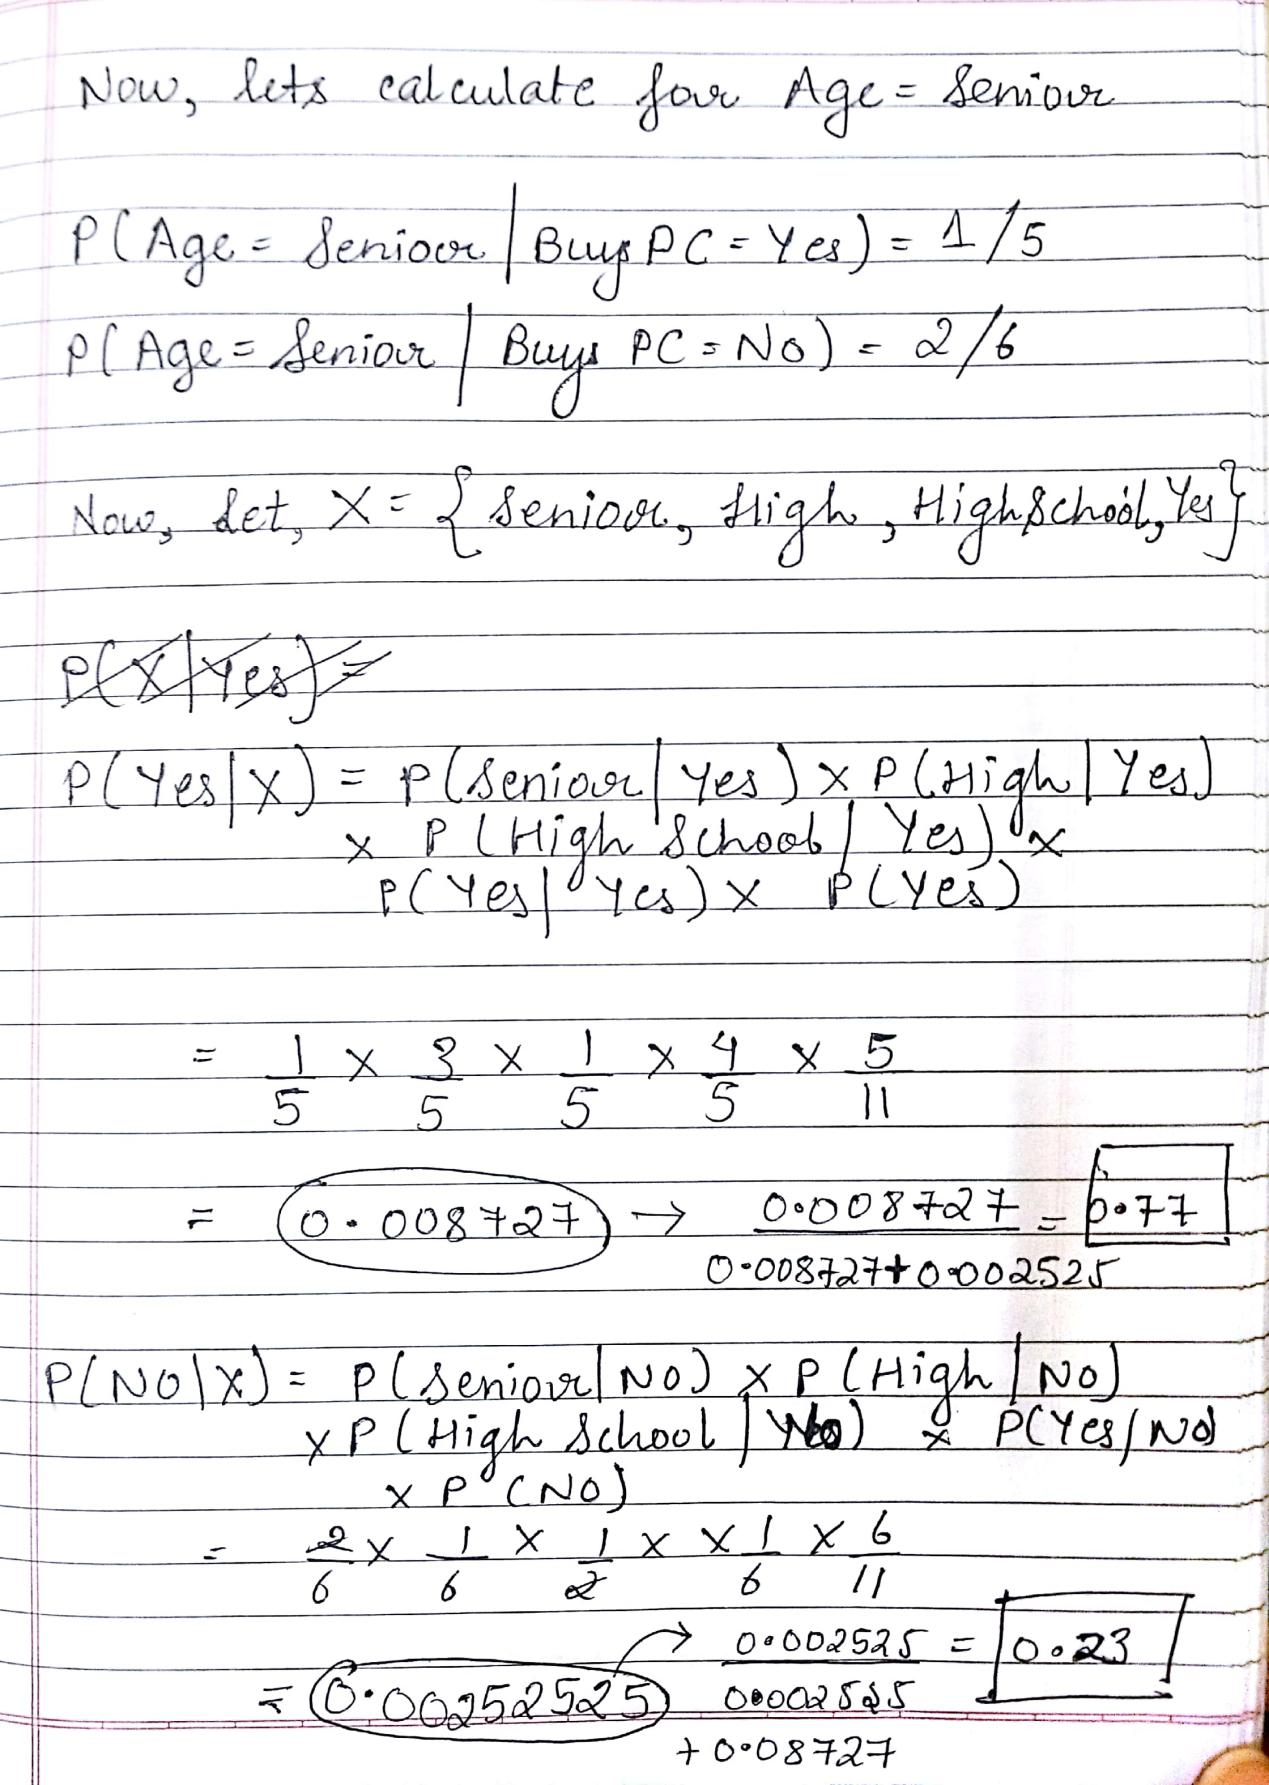 Now, lets calculate for Age = Senior
P(Age = Senior | Buys PC = Yes) = 1/5
P(Age = Senior | Buys PC = No) = 2/6
Now, Let, X = { Senior, High, High School, Yes}
P(X|Yes) =
P(Yes|X) = P(Senior | Yes) x P(High | Yes)
x P (High School | Yes) x
P(Yes| Yes) x P(Yes)
= 1/5 x 3/5 x 1/5 x 4/5 x 5/11
= 0.008727 → 0.008727 / 0.008727+0.002525 = 0.77
P(NO|X) = P(Senior|NO) x P(High | NO)
x P(High School | No) x P(Yes/NO)
x P(NO)
= 2/6 x 1/6 x 1/2 x x 1/6 x 6/11
= 0.00252525 → 0.002525 / 0.002525 + 0.08727 = 0.23